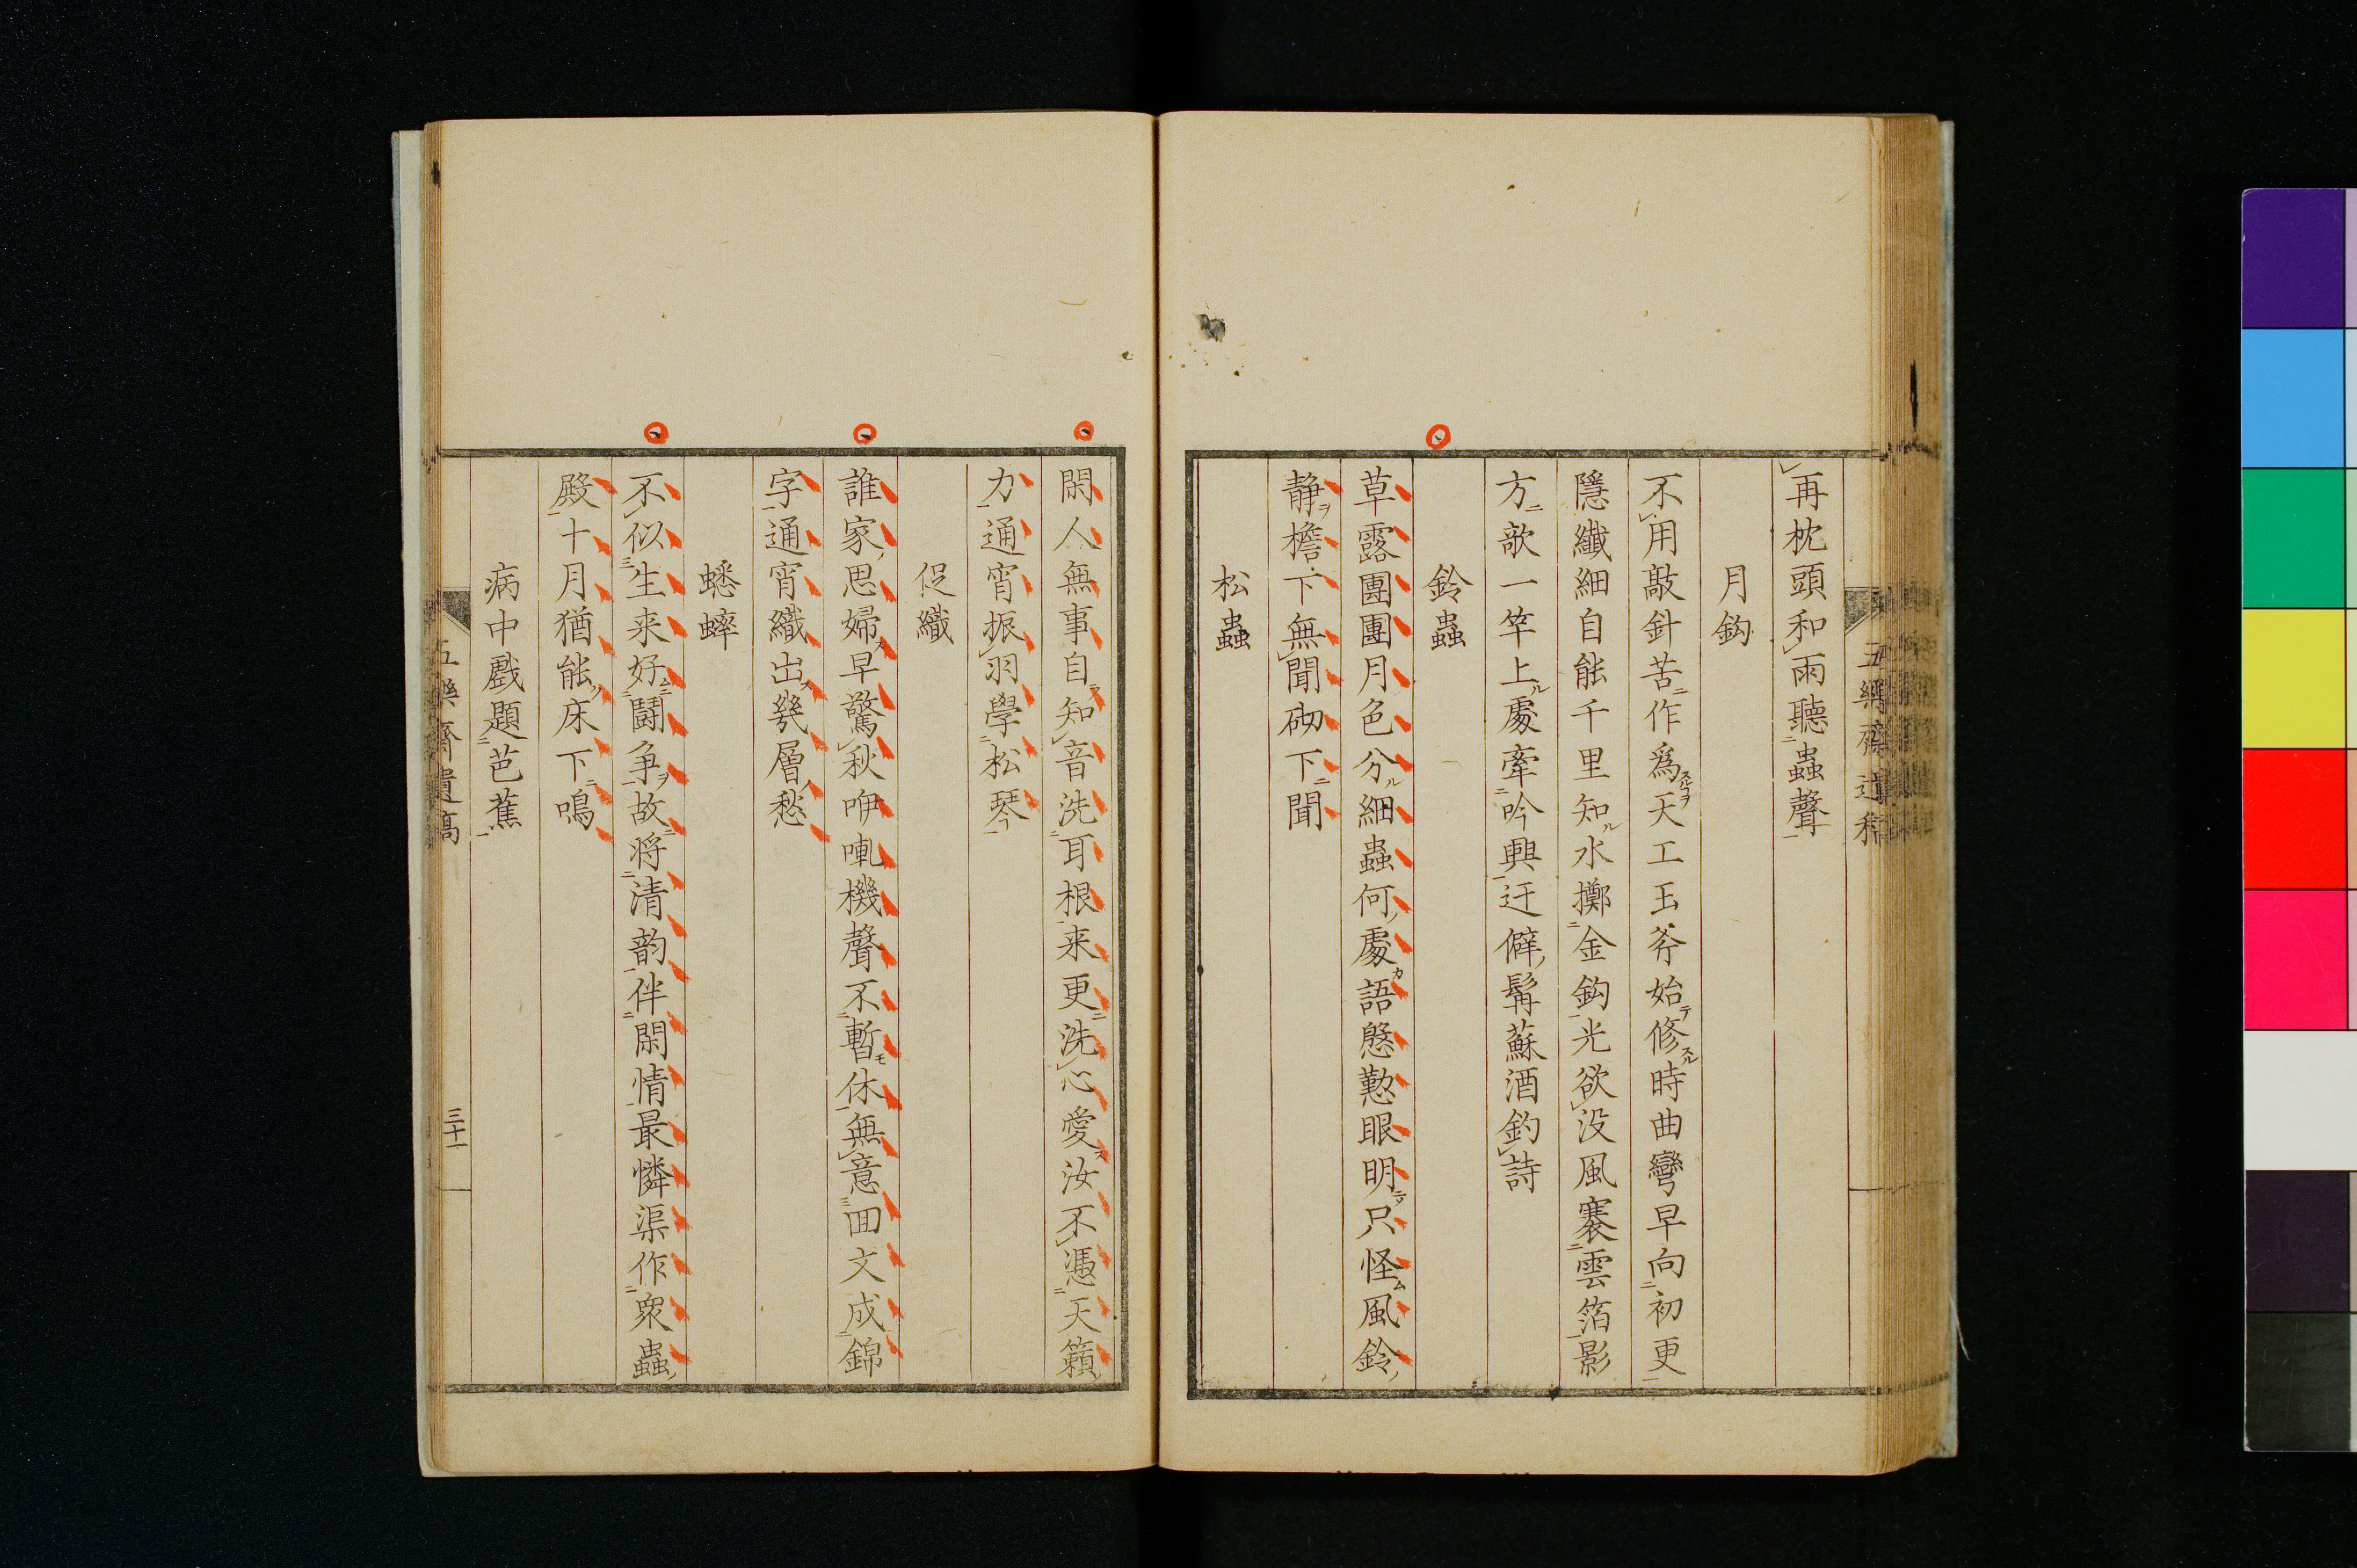 再枕頭和雨聽蟲聲
月鈎
不用敲針苦作爲天工玉斧始修時曲彎早向初更
隱纖細自能千里知水擲金鈎光欲没風褰雲箔影
方欹一竿上處牽吟興迂僻髯蘇酒釣詩
鈴蟲
草露團團月色分細蟲何處語慇懃眼明只怪風鈴
静檐下無聞砌下聞
松蟲
閑人無事自知音洗耳根来更洗心愛汝不憑天籟
力通宵振羽學松琴
促織
誰家思婦早驚秋咿機聲不暫休無意回文成錦
字通宵織出幾層愁
蟋蟀
不似生来好鬪争故将清韵伴閑情最憐渠作衆蟲
殿十月猶能床下鳴
病中戲題芭蕉
五樂齋遺稿
三十一